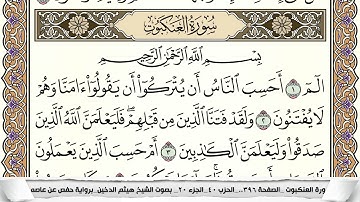 سُورَةُ الْعَنكَبُوتِ
بِسْمِ اللَّهِ الرَّحْمَٰنِ الرَّحِيمِ
الٓمٓ ١ أَحَسِبَ النَّاسُ أَن يُتْرَكُوٓا۟ أَن يَقُولُوٓا۟ ءَامَنَّا وَهُمْ
لَا يُفْتَنُونَ ٢ وَلَقَدْ فَتَنَّا الَّذِينَ مِن قَبْلِهِمْ ۖ فَلَيَعْلَمَنَّ اللَّهُ الَّذِينَ
صَدَقُوا۟ وَلَيَعْلَمَنَّ الْكَٰذِبِينَ ٣ أَمْ حَسِبَ الَّذِينَ يَعْمَلُونَ
ورة العنكبوت _الصفحة ٣٩٦_ الحزب ٤٠_ الجزء ٢٠_ بصوت الشيخ هيثم الدخين_ برواية حفص عن عاصم